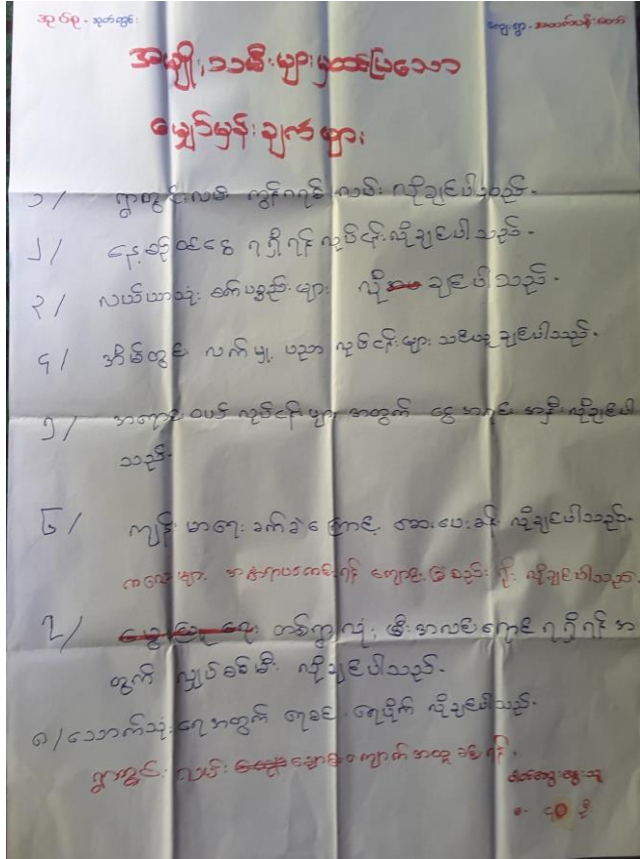 အုပ်စု - သုတ်တွင်း
ကျေးရွာ - အထက်ပန်းတော
အမျိုးသမီးများမှတင်ပြသော
မျှော်မှန်းချက်များ
၁/ ရွာတွင်းလမ်း ကွန်ကရစ် လမ်း လိုချင်ပါသည်။
၂/ နေ့စဉ်ဝင်ငွေ ရရှိရန် လုပ်ငန်းလိုချင်ပါသည်။
၃/ လယ်ယာသုံး စက်ပစ္စည်းများ လိုချင်ပါသည်။
၄/ အိမ်တွင်း လက်မှု ပညာ လုပ်ငန်းများ သင်ယူချင်ပါသည်။
၅/ အရောင်းဝယ် လုပ်ငန်းများ အတွက် ငွေ အရင်းအနှီး လိုချင်ပါ
သည်။
၆/ ကျန်းမာရေး ခက်ခဲကြောင့် ဆေးပေးခန်း လိုချင်ပါသည်။
ကလေးများ ကျောင်း စည်းရိုး လိုချင်ပါသည်။
၇/ တစ်ရွာလုံး မီးအလင်းရောင် ရရှိရန် အ
တွက် လျှပ်စစ်မီး လိုချင်ပါသည်။
၈/ သောက်သုံးရေအတွက် ရေစင် ရေပိုက် လိုချင်ပါသည်။
ရွာတွင်း လမ်း ချောမွေ့
တက်ရောက်သူ
၄၀ ဦး